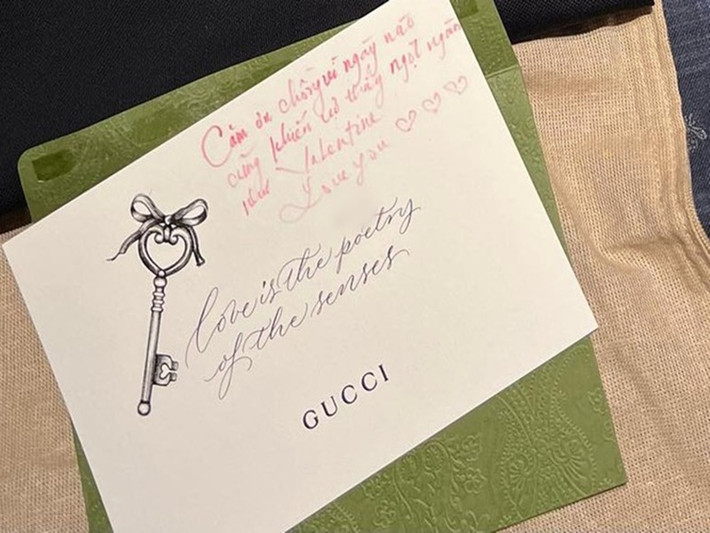 Cảm ơn chồng vì ngày nào
cũng khiến vợ thấy ngọt ngào
như Valentine
Love you
love is the poetry
of the senses
GUCCI